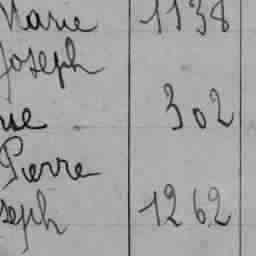 Marie 1138
Joseph
rie 302
Pierre
seph 1262